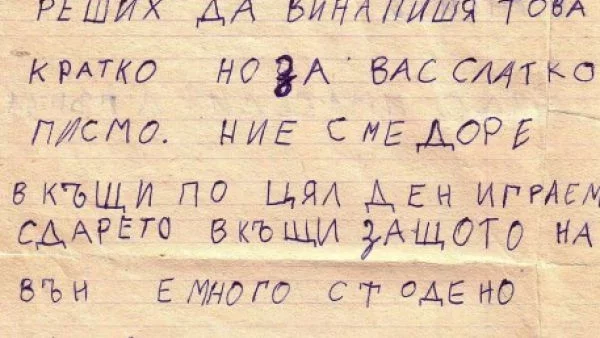 РЕШИХ ДА ВИНАПИШЯ ТОВА
КРАТКО НО ЗА ВАС СЛАТКО
ПИСМО. НИЕ СМЕ ДОРЕ
ВКЪЩИ ПО ЦЯЛ ДЕН ИГРАЕМ
СДАРЕТО ВКЪЩИ ЗАЩОТО НА
ВЪН Е МНОГО СТОДЕНО